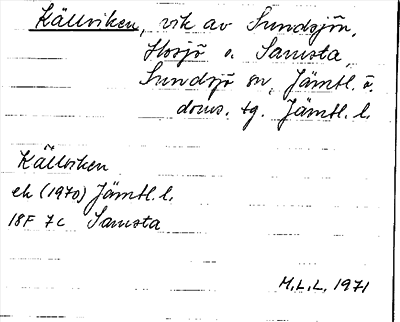 Källviken, vik av Sundsjön,
Hosjö o. Samsta,
Sundsjö sn, Jämtl. ö.
doms. tg. Jämtl. l.
Källviken
ek (1970) Jämtl. l.
18F 7c Samsta
M.L.L. 1971